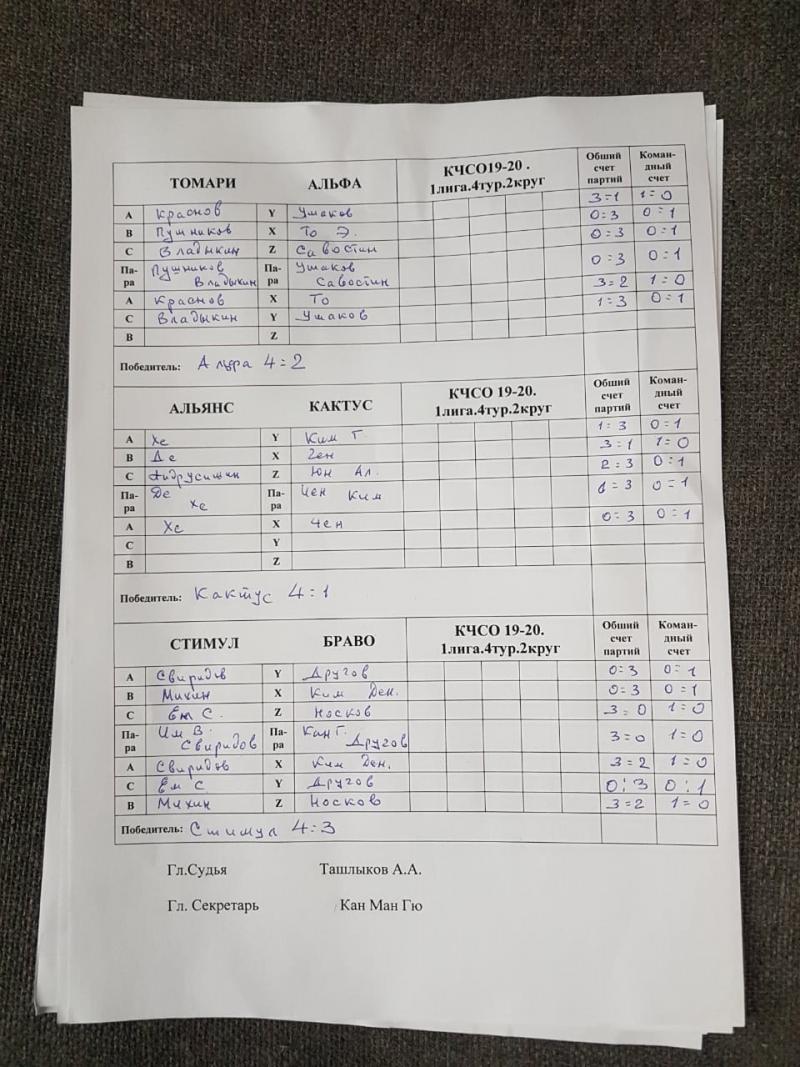 ТОМАРИ АЛЬФА КЧСО19-20 . 1лига.4тур.2круг Общий счет партий Коман-дный счет
А Краснов Y Ушаков 3=1 1=0
В Пушников X То Э. 0:3 0=1
С Владыкин Z Савостин 0:3 0=1
Па-ра Пушников Владыкин Па-ра Ушаков Савостин 0:3 0=1
А Краснов X То 3=2 1=0
С Владыкин Y Ушаков 1=3 0=1
В Z
Победитель: Альфа 4=2
АЛЬЯНС КАКТУС КЧСО 19-20. 1лига.4тур.2круг Общий счет партий Коман-дный счет
А Хе Y Ким Г. 1:3 0=1
В Де X Чен 3=1 1=0
С Z Юн Ал. 2=3 0=1
Па-ра Де Хе Па-ра Чен Ким 0=1
А Хе X Чен 0=3 0=1
С Y
В Z
Победитель: Кактус 4=1
СТИМУЛ БРАВО КЧСО 19-20. 1лига.4тур.2круг Общий счет партий Коман-дный счет
А Свиридов Y Другов 0=3 0=1
В Михин X Ким Ден. 0=3 0=1
С Ем С. Z Носков 3=0 1=0
Па-ра Им В. Свиридов Па-ра Кан Г. Другов 3=0 1=0
А Свиридов X Ким Ден. 3=2 1=0
С Ем С Y Другов 0:3 0:1
В Михин Z Носков 3=2 1=0
Победитель: Стимул 4=3
Гл.Судья Ташлыков А.А.
Гл. Секретарь Кан Ман Гю